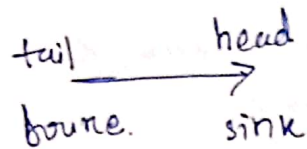 tail head
source. sink